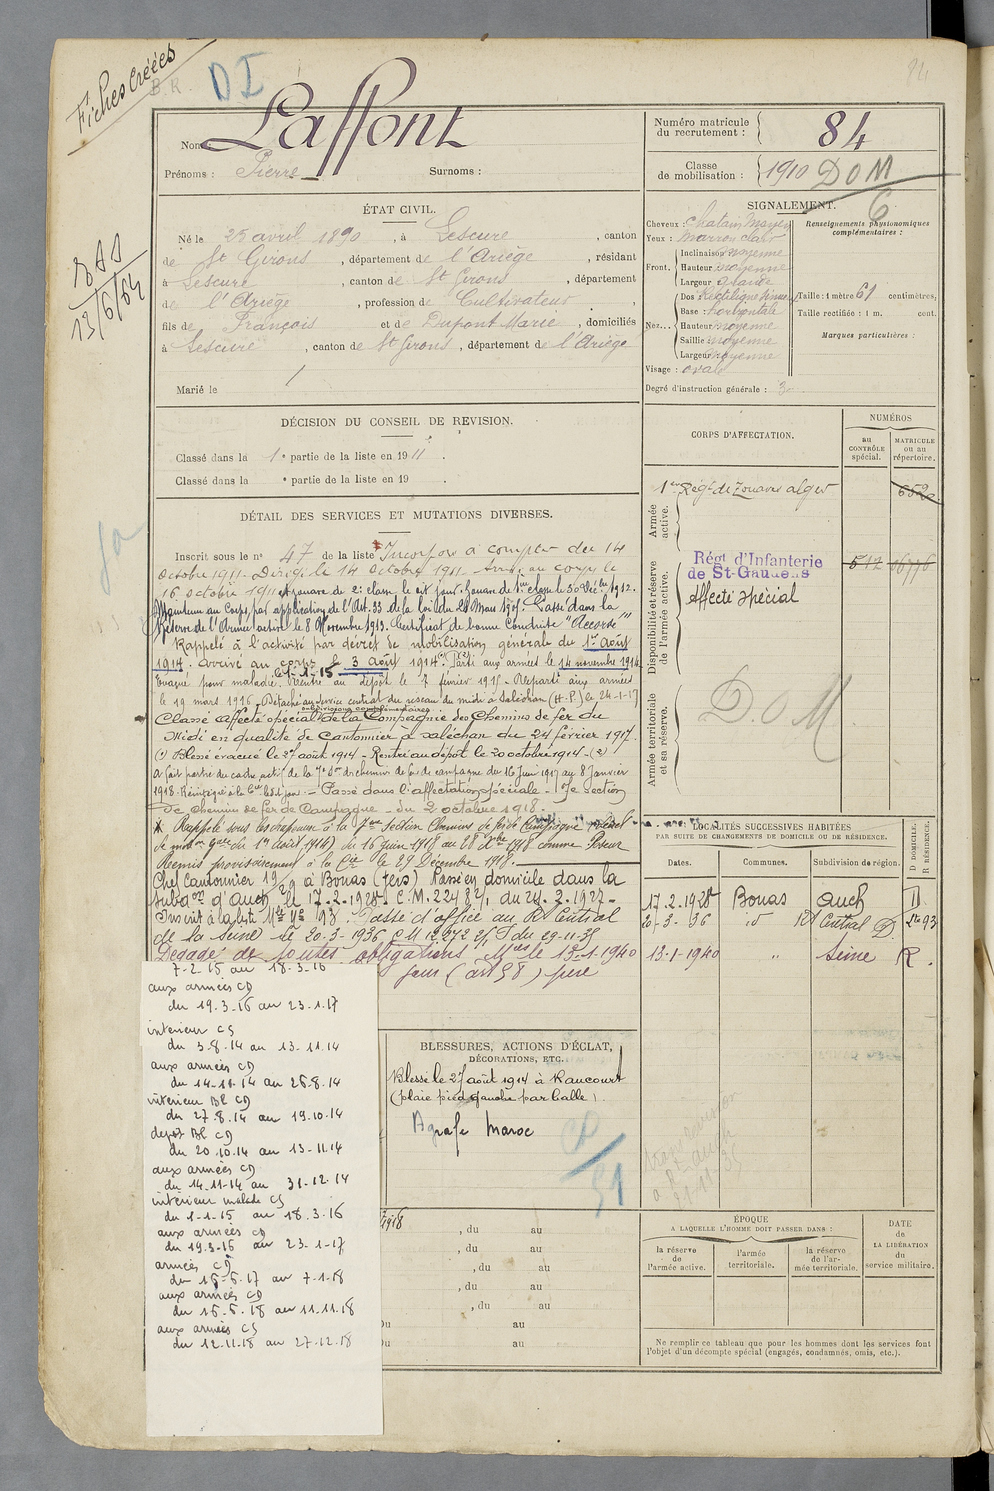 Fiches créées
B.R.
DI
84
Nom Laffont
Prénoms : Pierre Surnoms :
Numéro matricule du recrutement : 84
Classe de mobilisation : 1910
DOM
6
RAS
13/6/64
ÉTAT CIVIL.
Né le 25 avril 1890, à Lescure, canton
de St Girons, département de l'Ariège, résidant
à Lescure, canton de St Girons, département
de l'Ariège, profession de Cultivateur,
fils de François et de Dupont Marie, domiciliés
à Lescure, canton de St Girons, département de l'Ariège
Marié le /
SIGNALEMENT.
Cheveux : chatain moyen
Yeux : marron clair
Front. Inclinaison moyenne
Hauteur moyenne
Largeur grande
Nez... Dos Rectiligne sinueux
Base : horizontale
Hauteur moyenne
Saillie moyenne
Largeur moyenne
Visage : ovale
Renseignements physionomiques complémentaires :
Taille : 1 mètre 61 centimètres,
Taille rectifiée : 1 m. cent.
Marques particulières :
Degré d'instruction générale : 3
DÉCISION DU CONSEIL DE REVISION.
Classé dans la 1e partie de la liste en 1911.
Classé dans la e partie de la liste en 19 .
CORPS D'AFFECTATION.
NUMÉROS
au CONTRÔLE spécial.
MATRICULE ou au répertoire.
Armée active.
1er Régt de Zouaves alger
Disponibilité et réserve de l'armée active.
Régt d'Infanterie
de St-Gaudens
Affecté spécial
Armée territoriale et sa réserve.
D.O.M
DÉTAIL DES SERVICES ET MUTATIONS DIVERSES.
Inscrit sous le no 47 de la liste Incorporé à compter du 14
octobre 1911. Dirigé le 14 octobre 1911. Arrivé au corps le
16 octobre 1911 et zouave de 2e classe le dit jour. Zouave de 1ère classe le 30 Déc. 1912.
Maintenu au Corps par application de l'Art. 33 de la loi du 21 Mars 1905. Passé dans la
Réserve de l'Armée active le 8 Novembre 1913. Certificat de bonne Conduite "Accordé"
Rappelé à l'activité par décret de mobilisation générale du 1er Août
1914. Arrivé au corps le 3 Août 1914. Parti aux armées le 14 novembre 1914
Evacué pour maladie. Rentré au dépôt le 7 février 1915 - Reparti aux armées
le 19 mars 1916 - Détaché au Service central du réseau du midi à Saléchan (H.P.) le 24-1-17
subdivisions complémentaires
Classé affecté spécial de la Compagnie des Chemins de fer du
Midi en qualité de Cantonnier à Saléchan du 24 février 1917.
(1) Blessé évacué le 27 août 1914 - Rentré au dépôt le 20 octobre 1914 - (2)
A fait partie du cadre actif de la 7e Son de chemins de fer de campagne du 16 Juin 1917 au 8 Janvier
1918. Réintégré à la Cie le dit jour. - Passé dans l'affectation spéciale - 7e Section
de Chemins de fer de Campagne - du 2 octobre 1918.
* Rappelé sous les drapeaux à la 7ème Section Chemins de fer de Campagne
du 16 juin 1918 au 28 Xbre 1918 comme Poseur
Remis provisoirement à la Cie le 29 Décembre 1918.
Chef Cantonnier à Bonas (Gers) Passé en domicile dans la
subdon d'Auch le 17-2-1928. C.M. 22482/1 du 24.2.1927.
Passé d'office au Rt Central
de la Seine le 20-3-1936 CM 12.272 2/1 J du 29-11-35
Dégagé de toutes obligations Mres le 13-1-1940
(art 58) père
LOCALITÉS SUCCESSIVES HABITÉES
PAR SUITE DE CHANGEMENTS DE DOMICILE OU DE RÉSIDENCE.
Dates. Communes. Subdivision de région. D DOMICILE. R RÉSIDENCE.
17.2.1928 Bonas Auch D
20-3-36 id Rt Central D
13-1-1940 " Seine R.
7-2-15 au 18-3-16
aux armées CD
du 19.3-16 au 23-1-17
intérieur CS
du 3.8.14 au 13-11.14
aux armées CD
du 14-11-14 au 26.8.14
intérieur Bl CD
du 27.8.14 au 19.10.14
dépôt Bl CD
du 20.10.14 au 13-11.14
aux armées CD
du 14-11-14 au 31-12.14
intérieur malade CS
du 1-1-15 au 18.3-16
aux armées CD
du 19.3-16 au 23-1-17
armées CD
du 16-6-17 au 7-1-18
aux armées CD
du 16-6.18 au 11.11.18
aux armées CS
du 12.11.18 au 27-12.18
BLESSURES, ACTIONS D'ÉCLAT, DÉCORATIONS, ETC.
Blessé le 27 août 1914 à Raucourt
(plaie pied gauche par balle).
Agrafe Maroc
CD/51
, du au
, du au
, du au
, du au
, du au
Du au
Du au
ÉPOQUE
A LAQUELLE L'HOMME DOIT PASSER DANS :
la réserve de l'armée active.
l'armée territoriale.
la réserve de l'armée territoriale.
DATE DE LA LIBÉRATION du service militaire.
Ne remplir ce tableau que pour les hommes dont les services font
l'objet d'un décompte spécial (engagés, condamnés, omis, etc.).